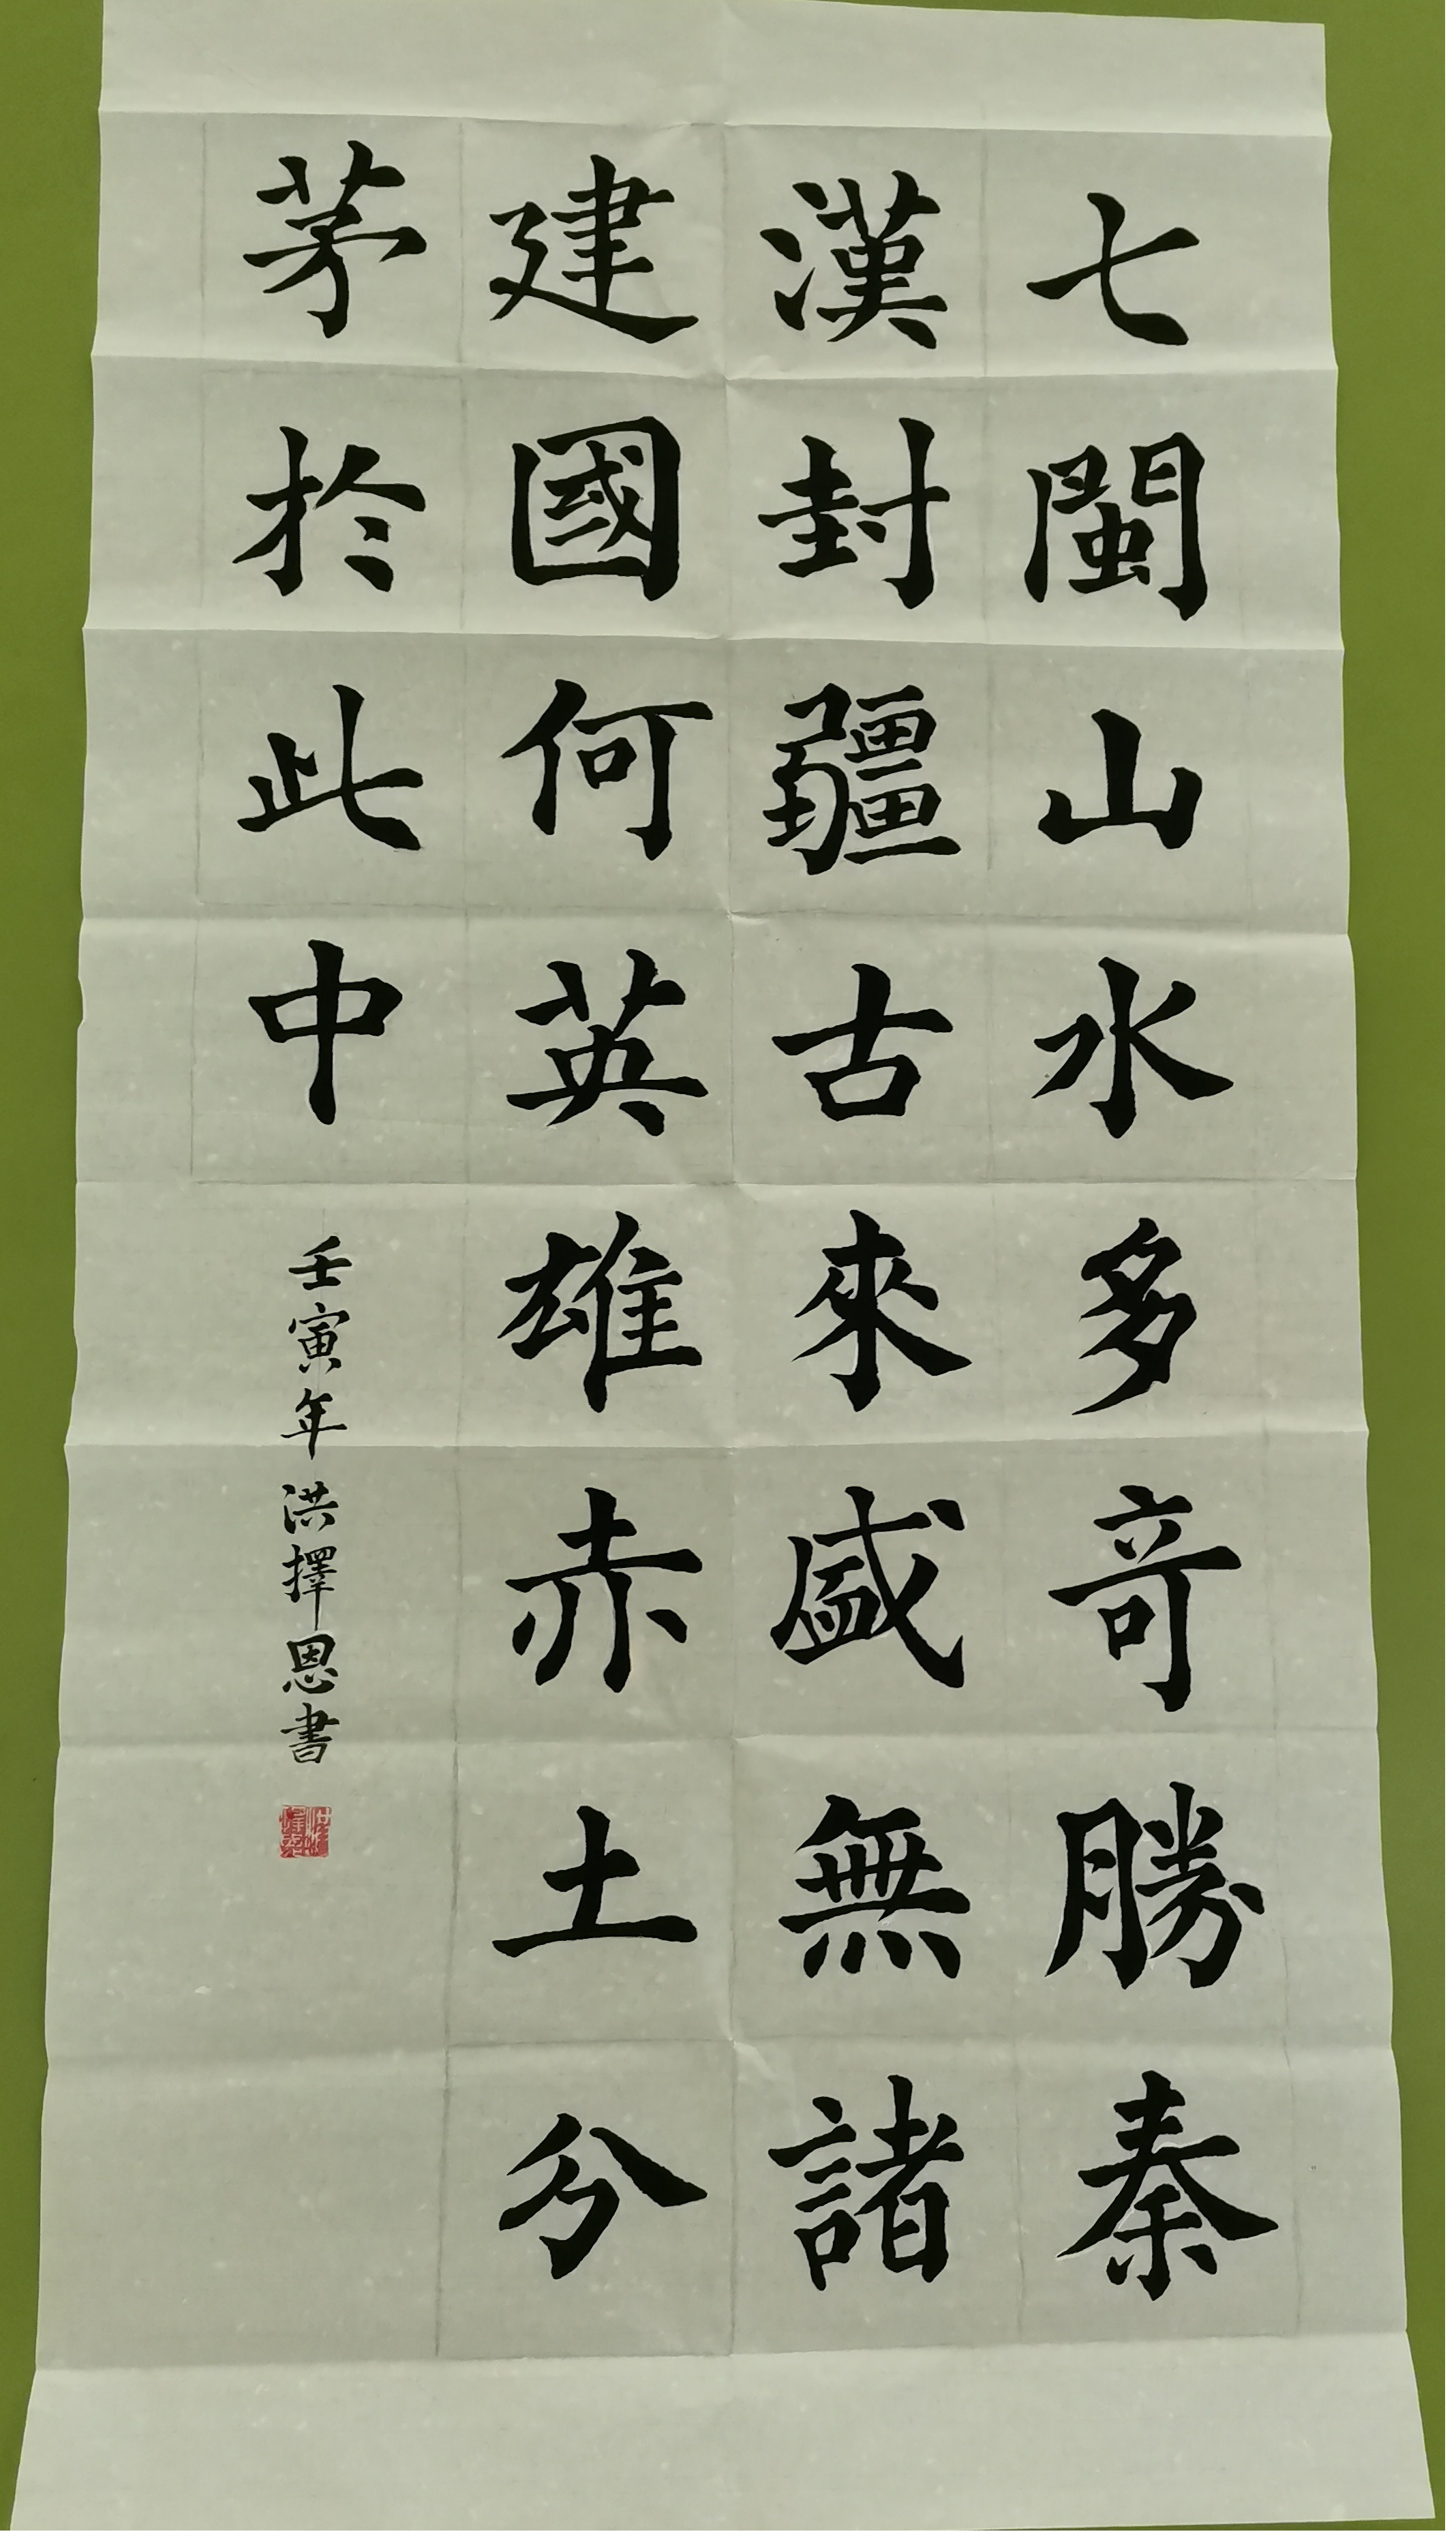 七閩山水多竒勝秦
漢封疆古來盛無諸
建國何英雄赤土分
茅於此中
壬寅年洪擇恩書